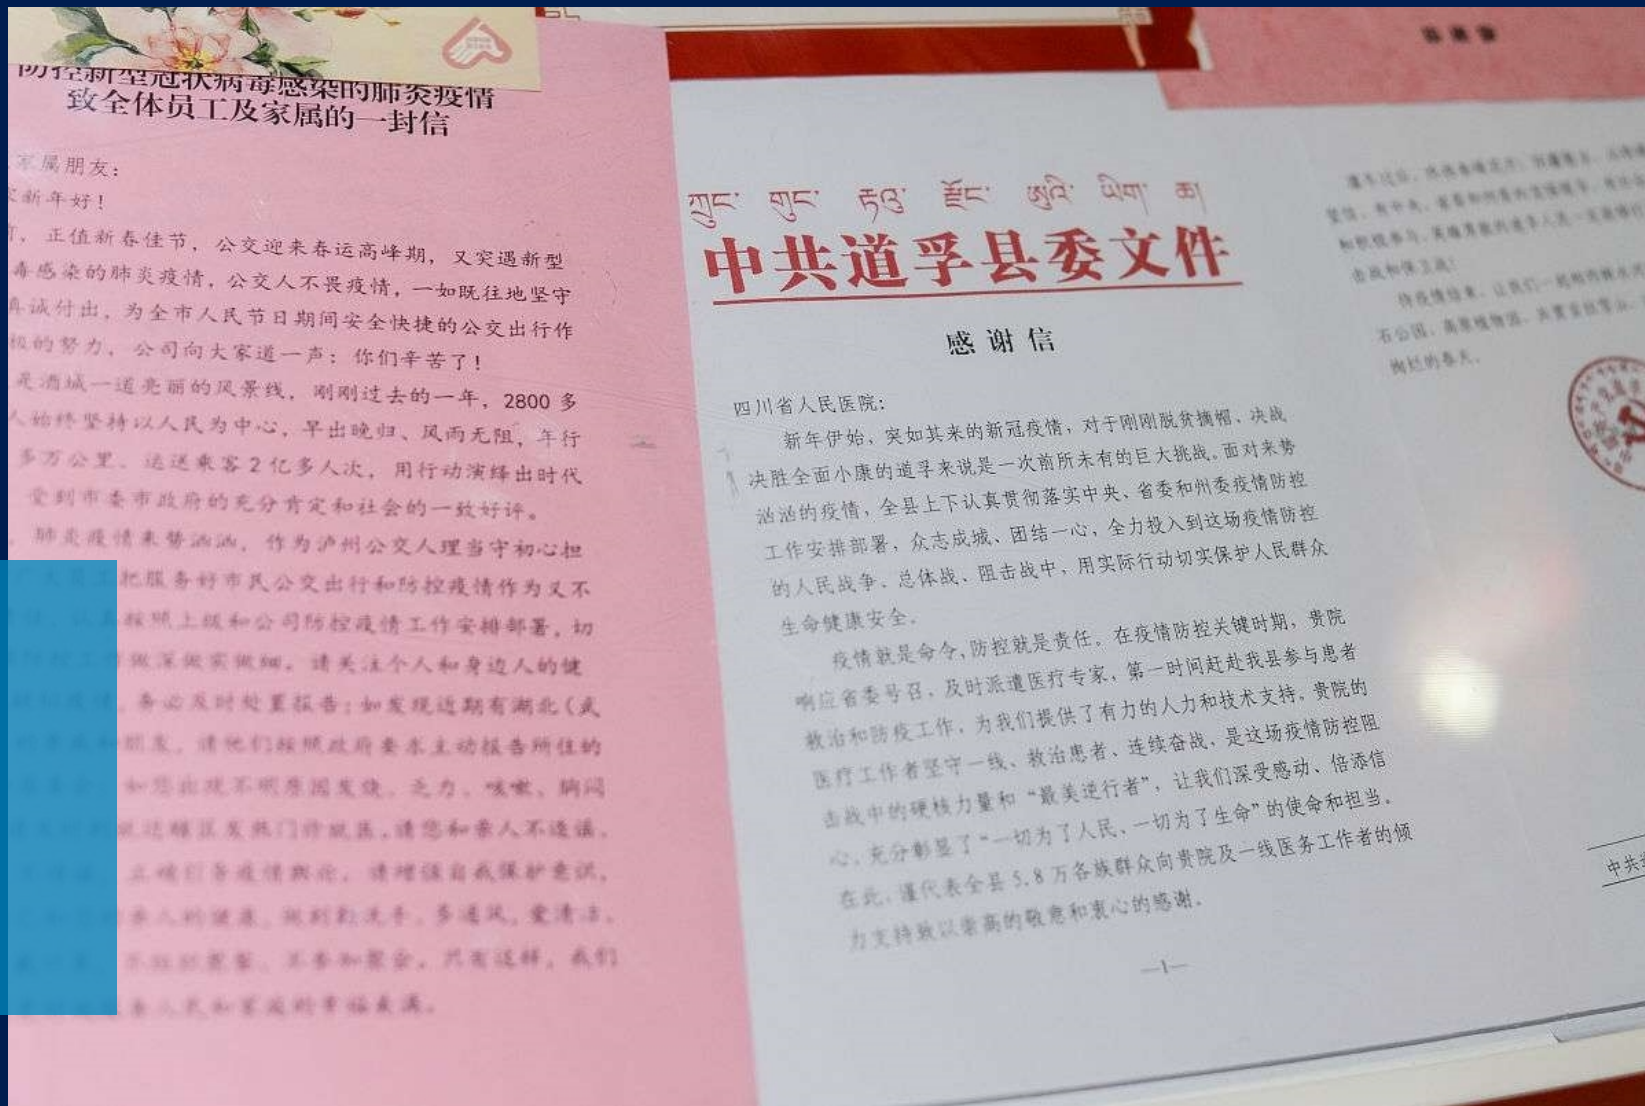 防控新型冠状病毒感染的肺炎疫情
致全体员工及家属的一封信
家属朋友：
新年好！
，正值新春佳节，公交迎来春运高峰期，又突遇新型
毒感染的肺炎疫情，公交人不畏疫情，一如既往地坚守
真诚付出，为全市人民节日期间安全快捷的公交出行作
极的努力，公司向大家道一声：你们辛苦了！
是酒城一道亮丽的风景线，刚刚过去的一年，2800 多
人始终坚持以人民为中心，早出晚归、风雨无阻，年行
多万公里、运送乘客 2 亿多人次，用行动演绎出时代
受到市委市政府的充分肯定和社会的一致好评。
肺炎疫情来势汹汹，作为泸州公交人理当守初心担
把服务好市民公交出行和防控疫情作为义不
按照上级和公司防控疫情工作安排部署，切
做深做实做细。请关注个人和身边人的健
，务必及时处置报告；如发现近期有湖北（武
朋友，请他们按照政府要求主动报告所住的
如您出现不明原因发烧、乏力、咳嗽、胸闷
就近辖区发热门诊就医。请您和亲人不造谣、
正确引导疫情舆论。请增强自我保护意识，
亲人的健康，做到勤洗手、多通风、爱清洁、
不参加聚会。只有这样，我们
ཀྲུང་ གུང་ རྟའུ་ རྫོང་ ཨུའི་ ཡིག་ ཆ།
中共道孚县委文件
感谢信
四川省人民医院：
新年伊始，突如其来的新冠疫情，对于刚刚脱贫摘帽、决战
决胜全面小康的道孚来说是一次前所未有的巨大挑战。面对来势
汹汹的疫情，全县上下认真贯彻落实中央、省委和州委疫情防控
工作安排部署，众志成城、团结一心，全力投入到这场疫情防控
的人民战争、总体战、阻击战中，用实际行动切实保护人民群众
生命健康安全。
疫情就是命令，防控就是责任。在疫情防控关键时期，贵院
响应省委号召，及时派遣医疗专家，第一时间赶赴我县参与患者
救治和防疫工作，为我们提供了有力的人力和技术支持。贵院的
医疗工作者坚守一线、救治患者、连续奋战，是这场疫情防控阻
击战中的硬核力量和“最美逆行者”，让我们深受感动、倍添信
心，充分彰显了“一切为了人民、一切为了生命”的使命和担当。
在此，谨代表全县 5.8 万各族群众向贵院及一线医务工作者的倾
力支持致以崇高的敬意和衷心的感谢。
—1—
击战和保卫战！
待疫情结束，让我们一起相约鲜水河
石公园、高原植物园，共赏
绚烂的春天。
中共